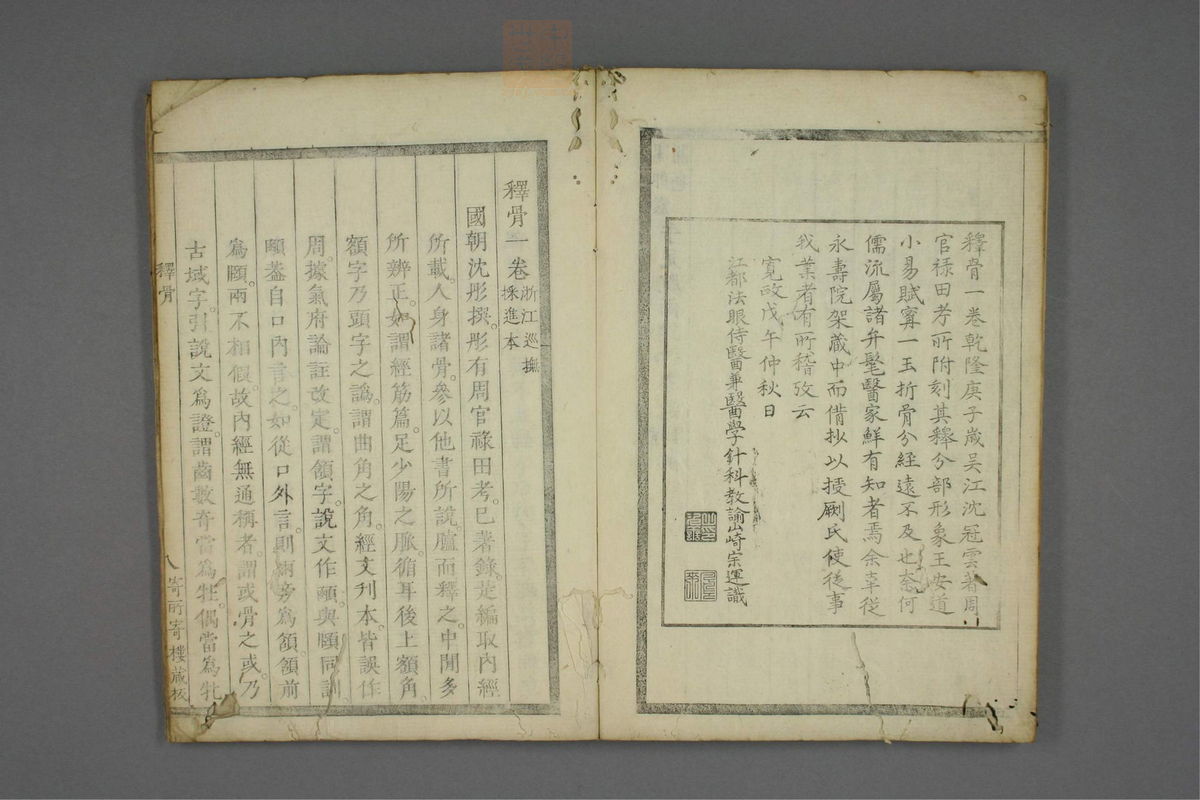 釋骨一卷乾隆庚子歲吴江沈冠雲著周
官禄田考所附刻其釋分部形象王安道
小易賦甯一玉折骨分経遠不及也柰何
儒流屬諸弁髦醫家鮮有知者焉余幸従
永壽院架蔵中而借抄以授劂氏使従事
我業者有所稽攷云
寛政戊午仲秋日
江都法眼侍醫兼醫學針科教諭山崎宗運識
釋骨一卷 浙江巡撫
採進本
國朝沈彤撰。彤有周官祿田考。已著錄。是編取內經
所載。人身諸骨。參以他書所說。臚而釋之。中閒多
所辨正。如謂經筋篇。足少陽之脈。循耳後上額角。
額字乃頭字之譌。謂曲角之角。經文刋本。皆誤作
周。據氣府論註改定。謂頷字。說文作顄。與頤同訓
頤。葢自口內言之。如從口外言。則兩旁爲頷。頷前
爲頤。兩不相假。故內經無通稱者。謂或骨之或。乃
古域字。引說文爲證。謂齒數奇當爲牡。偶當爲牝
釋骨
寄所寄樓蔵板